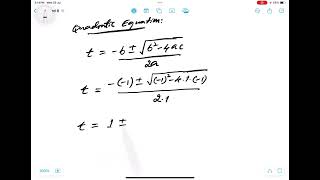 Quadratic Equation:
t = -b ± √b²-4ac / 2a
t = -(-1) ± √(-1)²-4.1.(-1) / 2.1
t = 1 ±